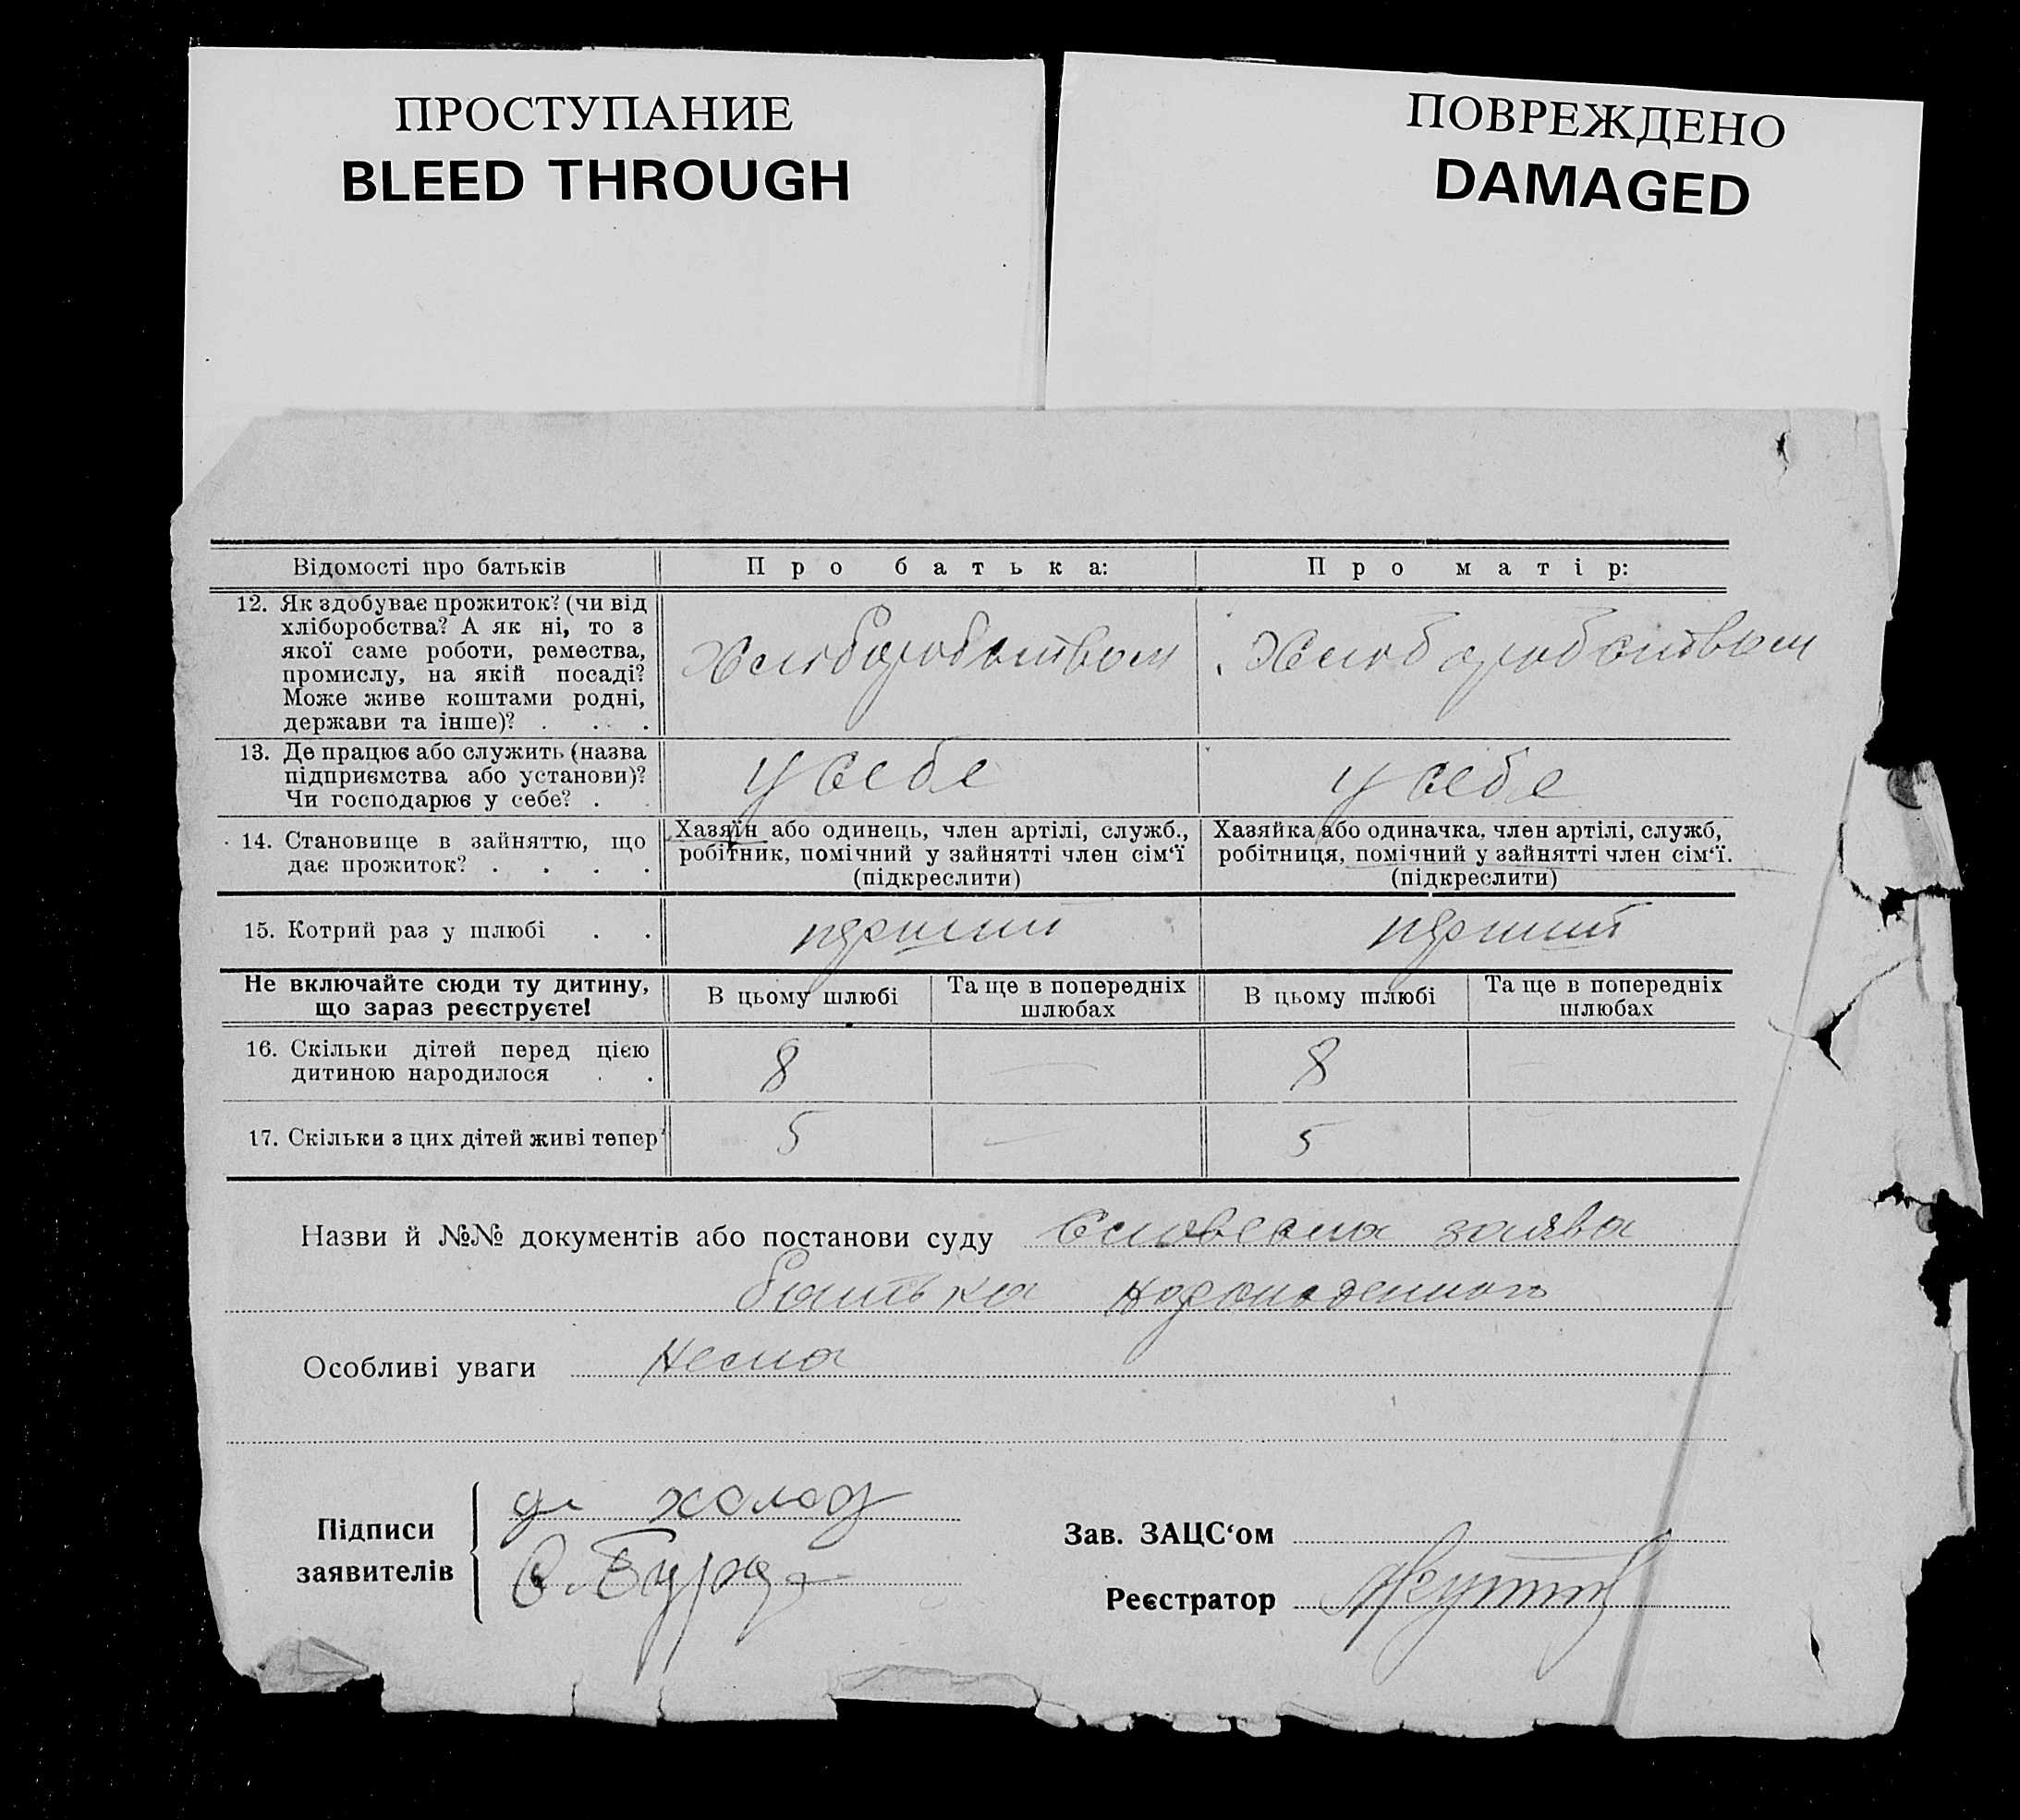 ПРОСТУПАНИЕ
BLEED THROUGH
ПОВРЕЖДЕНО
DAMAGED
Відомості про батьків
Про батька:
Про матір:
12. Як здобуває прожиток? (чи від
хліборобства? А як ні, то з
якої саме роботи, ремества,
промислу, на якій посаді?
Може живе коштами родні,
держави та інше)? . . .
Хліборобством
Хліборобством
13. Де працює або служить (назва
підприємства або установи)?
Чи господарює у себе? . .
у себе
у себе
14. Становище в зайняттю, що
дає прожиток? . . . .
Хазяїн або одинець, член артілі, служб.,
робітник, помічний у зайнятті член сім‘ї
(підкреслити)
Хазяйка або одиначка, член артілі, служб,
робітниця, помічний у зайнятті член сім‘ї.
(підкреслити)
15. Котрий раз у шлюбі . .
перший
перший
Не включайте сюди ту дитину,
що зараз реєструєте!
В цьому шлюбі
Та ще в попередніх
шлюбах
В цьому шлюбі
Та ще в попередніх
шлюбах
16. Скільки дітей перед цією
дитиною народилося . .
8
—
8
—
17. Скільки з цих дітей живі тепер
5
—
5
Назви й №№ документів або постанови суду Словесна заява
батька
Особливі уваги Нема
Підписи
заявителів
холод
Зав. ЗАЦС‘ом
Реєстратор